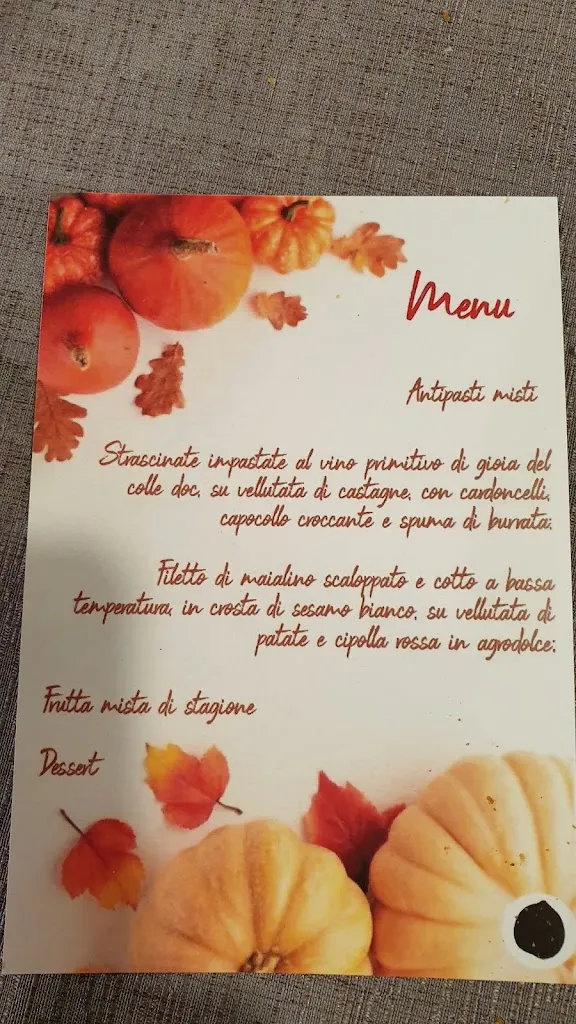 Menu
Antipasti misti
Strascinate impastate al vino primitivo di gioia del
colle doc, su vellutata di castagne, con cardoncelli,
capocollo croccante e spuma di burrata;
Filetto di maialino scaloppato e cotto a bassa
temperatura, in crosta di sesamo bianco, su vellutata di
patate e cipolla rossa in agrodolce;
Frutta mista di stagione
Dessert